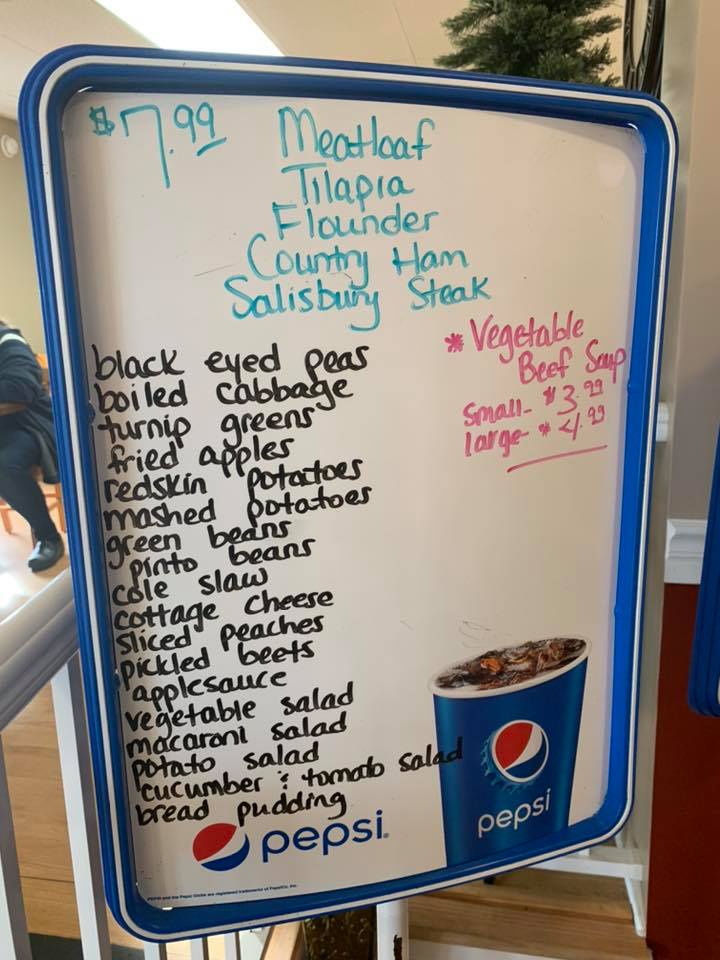 $7.99 Meatloaf
Tilapia
Flounder
Country Ham
Salisbury Steak
* Vegetable
Beef Soup
small- $3.99
large- $4.99
black eyed peas
boiled cabbage
turnip greens
fried apples
redskin potatoes
mashed potatoes
green beans
pinto beans
cole slaw
cottage cheese
sliced peaches
pickled beets
applesauce
vegetable salad
macaroni salad
potato salad
cucumber & tomato salad
bread pudding
pepsi
pepsi
PEPSI and the Pepsi Globe are registered trademarks of PepsiCo, Inc.